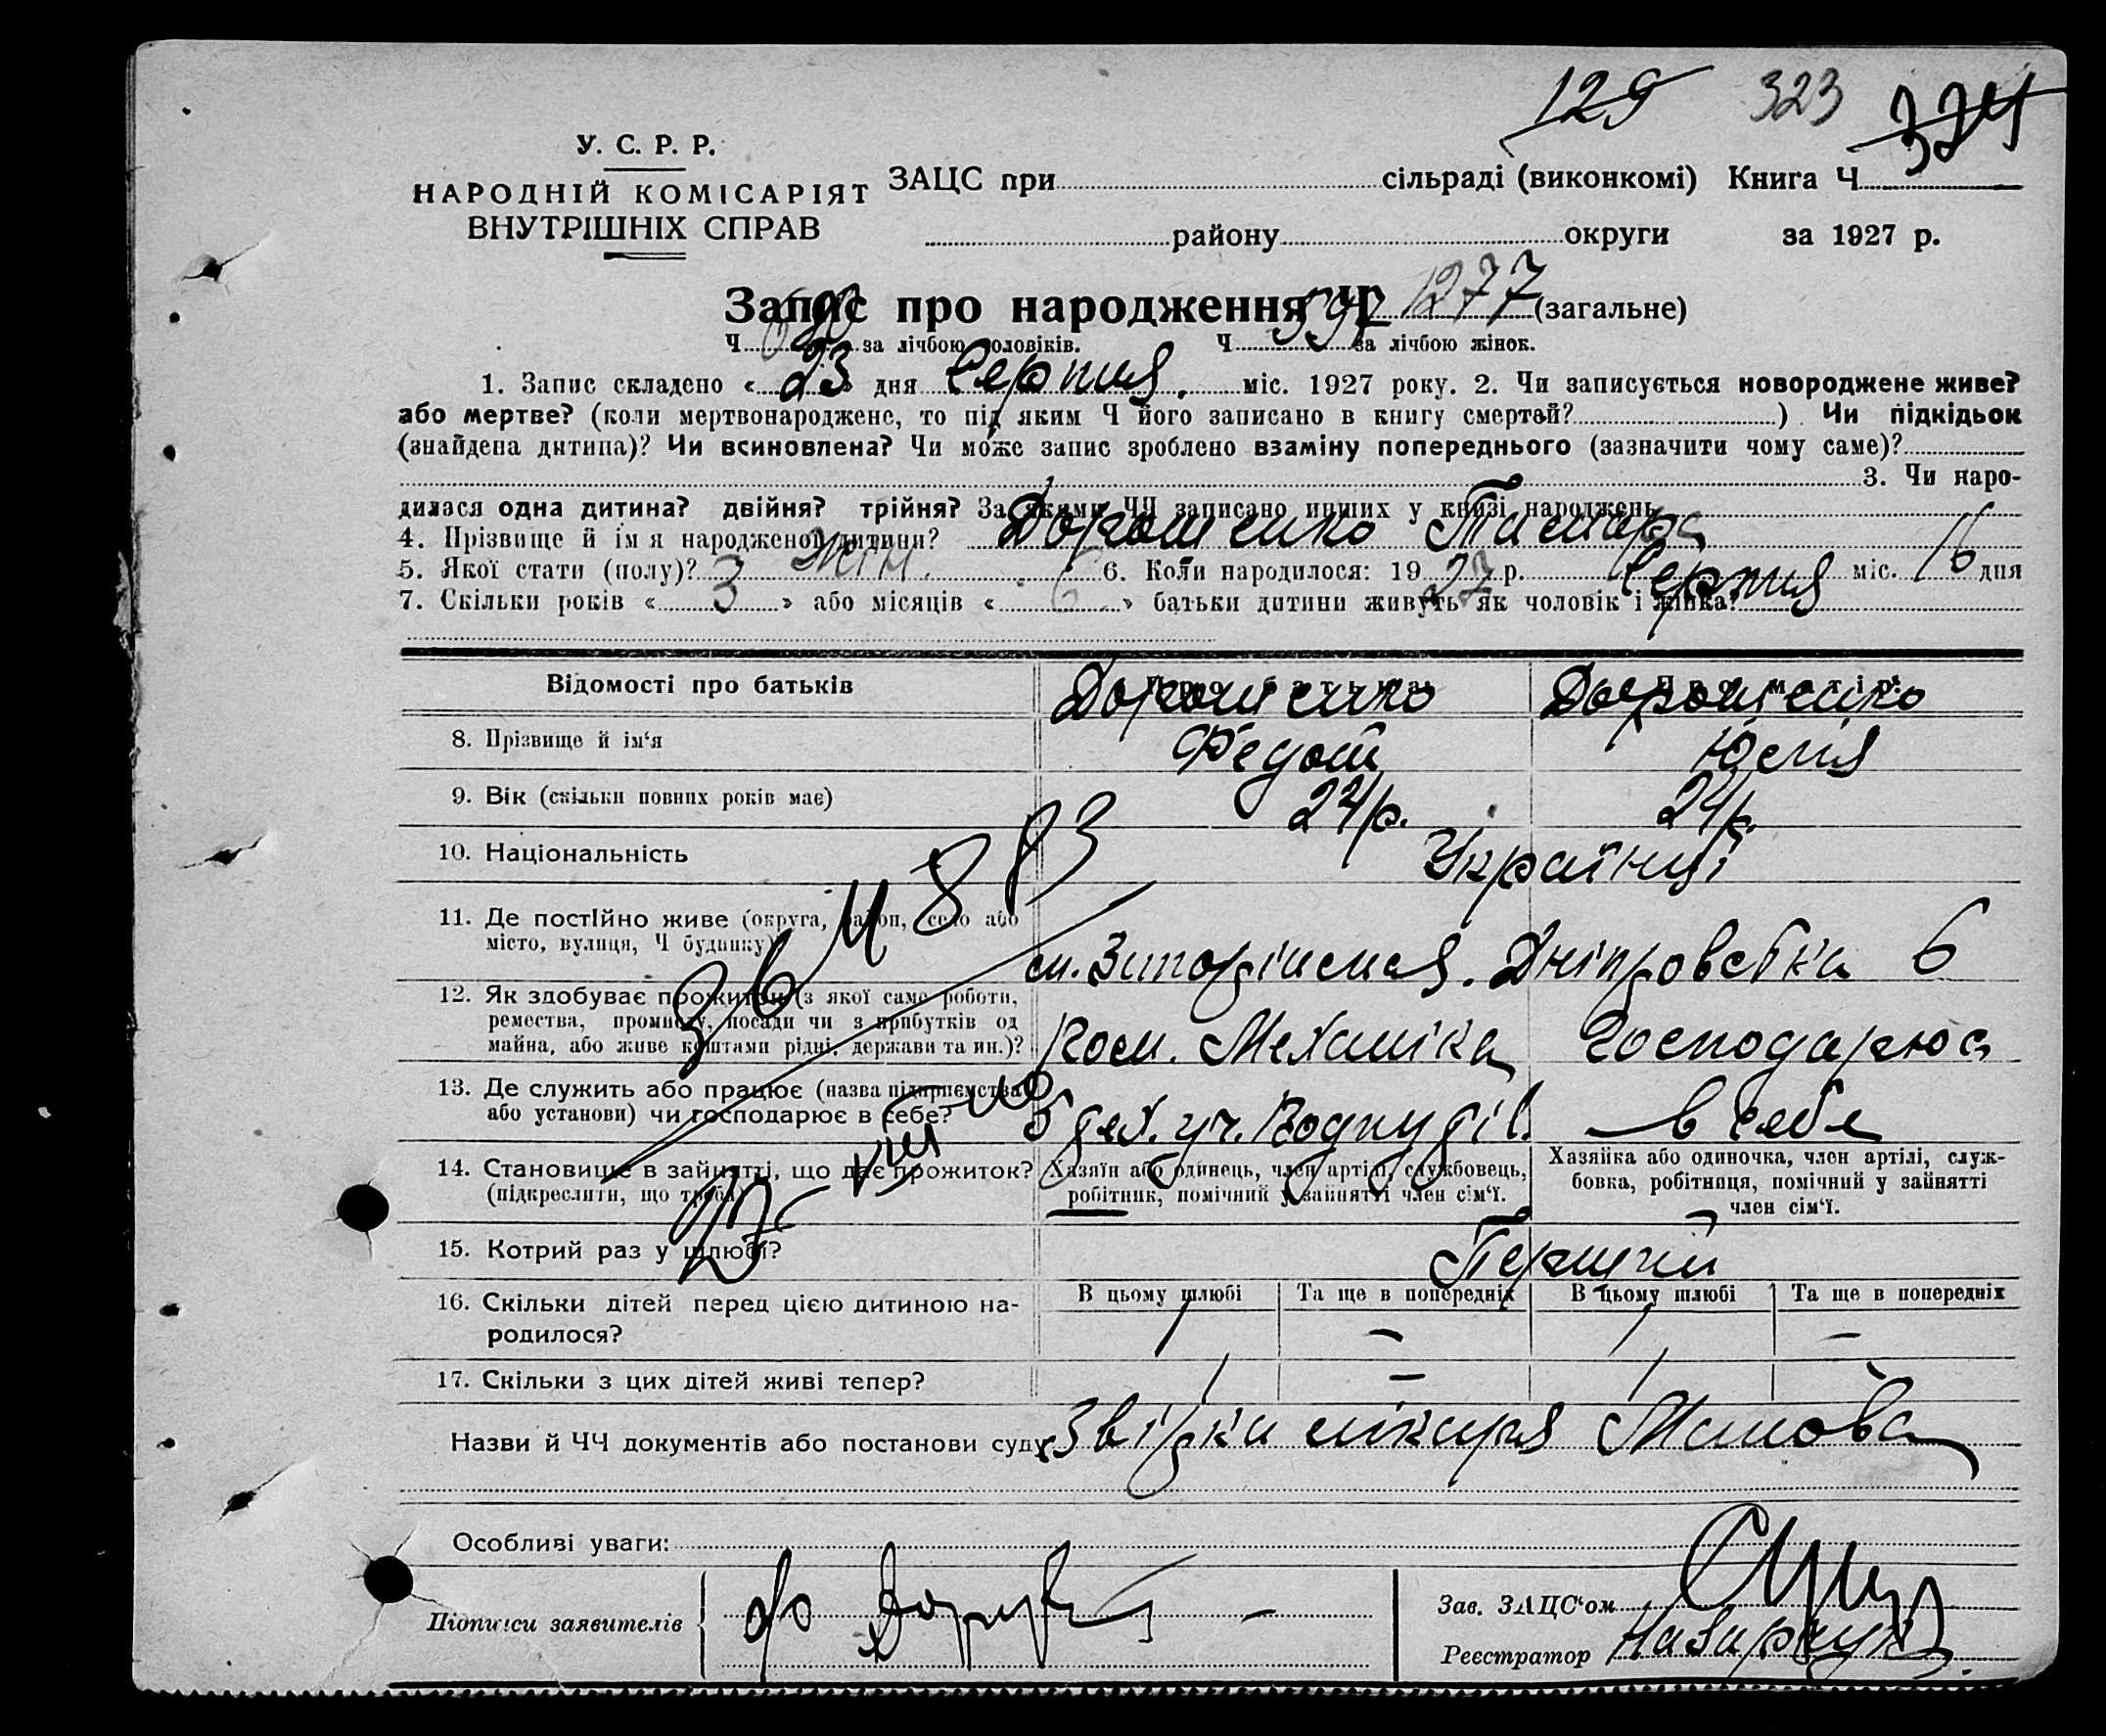 129 323 324
У. С. Р. Р.
НАРОДНІЙ КОМІСАРІЯТ
ВНУТРІШНІХ СПРАВ
ЗАЦС при сільраді (виконкомі) Книга Ч
району округи за 1927 р.
Запис про народження Ч 1277 (загальне)
Ч за лічбою чоловіків. Ч 597 за лічбою жінок.
1. Запис складено « 23 » дня Серпня міс. 1927 року. 2. Чи записується новороджене живе?
або мертве? (коли мертвонароджене, то під яким Ч його записано в книгу смертей? ) Чи підкідьок
(знайдена дитина)? Чи всиновлена? Чи може запис зроблено взаміну попереднього (зазначити чому саме)?
3. Чи наро-
дилася одна дитина? двійня? трійня? За якими ЧЧ записано инших у книзі народжень
4. Прізвище й ім я народженої дитини? Дорошенко Тамара
5. Якої стати (полу)? жін. 6. Коли народилося: 19 27 р. Серпня міс. 16 дня
7. Скільки років « 3 » або місяців « 6 » батьки дитини живуть як чоловік і жінка?
Відомості про батьків Про батька Про матір
8. Прізвище й ім‘я Дорошенко Федот Дорошенко Юлія
9. Вік (скільки повних років має) 24 р. 24 р.
10. Національність Українці
11. Де постійно живе (округа, район, село або
місто, вулиця, Ч будинку) м. Запоріжжя. Дніпровська 6
12. Як здобуває прожиток (з якої саме роботи,
ремества, промислу, посади чи з прибутків од
майна, або живе коштами рідні, держави та ин.)? Пом. Механіка Господарює
13. Де служить або працює (назва підприємства
або установи) чи господарює в себе? в себе
14. Становище в зайнятті, що дає прожиток?
(підкреслити, що треба)
Хазяїн або одинець, член артілі, службовець,
робітник, помічний у зайнятті член сім‘ї.
Хазяйка або одиночка, член артілі, служ-
бовка, робітниця, помічний у зайнятті
член сім‘ї.
15. Котрий раз у шлюбі? Перший
16. Скільки дітей перед цією дитиною на-
родилося?
В цьому шлюбі Та ще в попередніх В цьому шлюбі Та ще в попередніх
1 – 1 –
17. Скільки з цих дітей живі тепер? 1 – 1
Назви й ЧЧ документів або постанови суду Звідка лікаря
Особливі уваги:
Підписи заявителів
Зав. ЗАЦС‘ом
Реєстратор